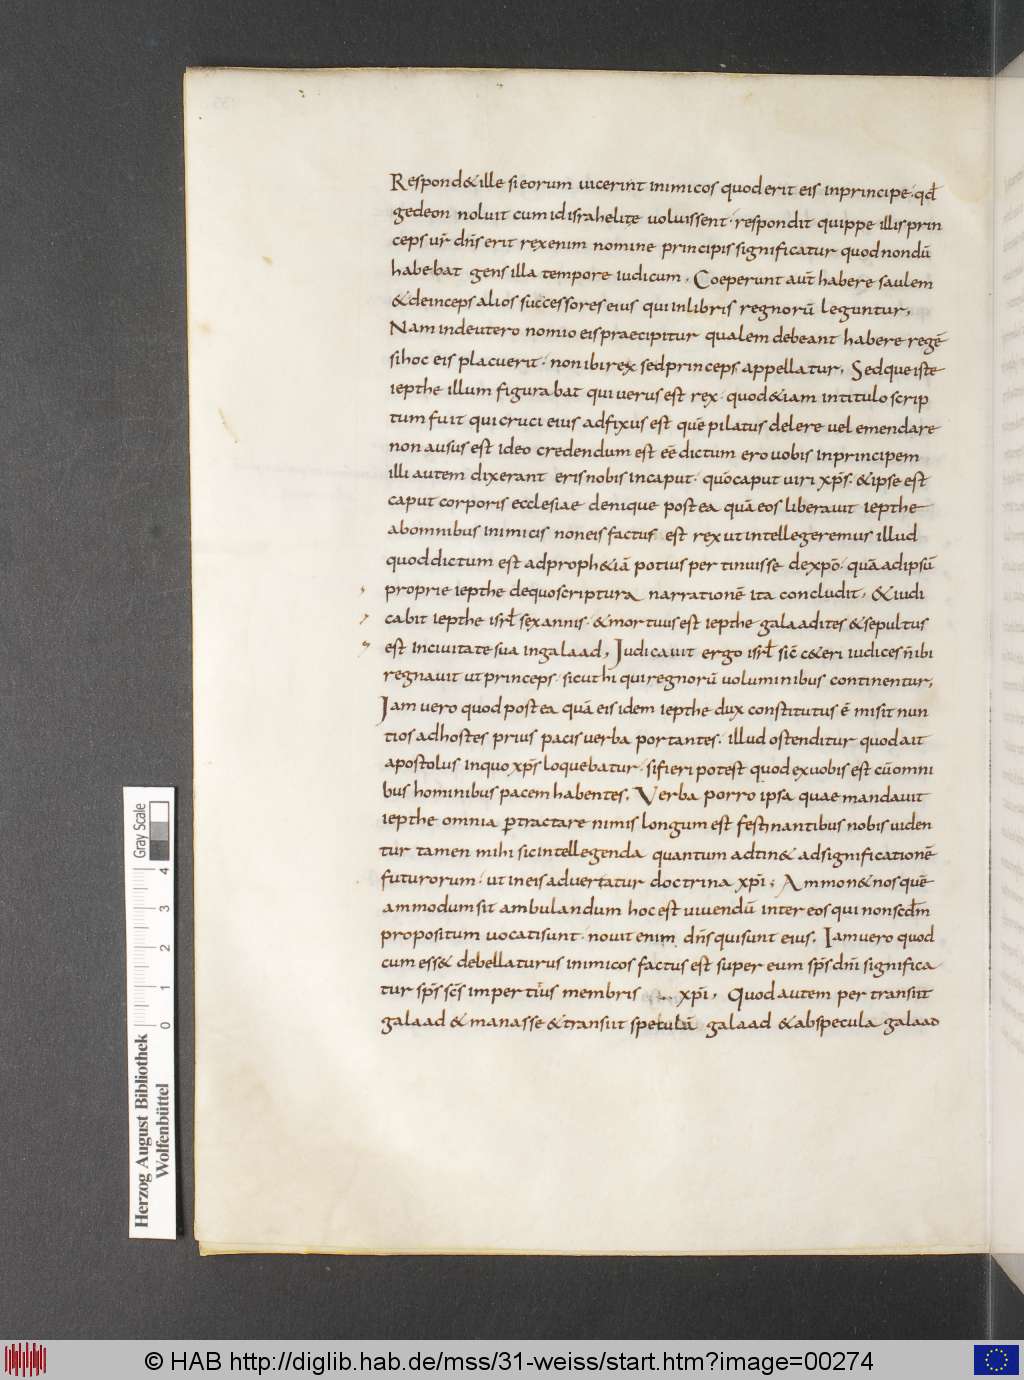 Respond& ille sieorum uicerint inimicos quod erit eis inprincipe· qđ
gedeon noluit cum id israhelitę uoluissent· respondit quippe illis prin
ceps ur̄ dn̄s erit rex enim nomine principis significatur quod nondū
habebat gens illa tempore iudicum. Coeperunt aut̄ habere saulem
& deinceps alios successores eius qui inlibris regnorū leguntur.
Nam indeutero nomio eis praecipitur qualem debeant habere regē
sihoc eis placuerit· non ibi rex sed princeps appellatur. Sedque iste
iepthe illum figurabat qui uerus est rex· quod & iam intitulo scrip
tum fuit qui cruci eius adfixus est quē pilatus delere uel emendare
non ausus est ideo credendum est eē dictum ero uobis inprincipem
illi autem dixerant eris nobis incaput· quō caput uiri xp̄s· & ipse est
caput corporis ecclesiae denique postea quā eos liberauit iepthe
abomnibus inimicis non eis factus est rex ut intellegeremus illud
quod dictum est adproph&iā potius pertinuisse dexp̄o· quā adipsū
proprie iepthe dequo scriptura narrationē ita concludit. & iudi
cabit iepthe isrl̄ sex annis· & mortuus est iepthe galaadites & sepultus
est inciuitate sua ingalaad. Iudicauit ergo isrl̄ sic̄ c&eri iudices n̄ ibi
regnauit ut princeps· sicut hi qui regnorū uoluminibus continentur.
Iam uero quod postea quā eis idem iepthe dux constitutus ē misit nun
tios adhostes prius pacis uerba portantes. illud ostenditur quod ait
apostolus inquo xp̄s loquebatur· si fieri potest quod exuobis est cū omni
bus hominibus pacem habentes. Verba porro ipsa quae mandauit
iepthe omnia ꝑtractare nimis longum est festinantibus nobis uiden
tur tamen mihi sic intellegenda quantum adtin& adsignificationē
futurorum· ut in eis aduertatur doctrina xp̄i; Ammon& nos quē
ammodum sit ambulandum hoc est uiuendū inter eos qui non scdm̄
propositum uocati sunt· nouit enim dn̄s qui sunt eius. Iam uero quod
cum ess& debellaturus inimicos factus est super eum sp̄s dn̄i significa
tur sp̄s sc̄s impertitus membris xp̄i. Quod autem pertransiit
galaad & manasse & transiit speculū galaad & abspecula galaad
Gray Scale
0 1 2 3 4
Herzog August Bibliothek
Wolfenbüttel
© HAB http://diglib.hab.de/mss/31-weiss/start.htm?image=00274